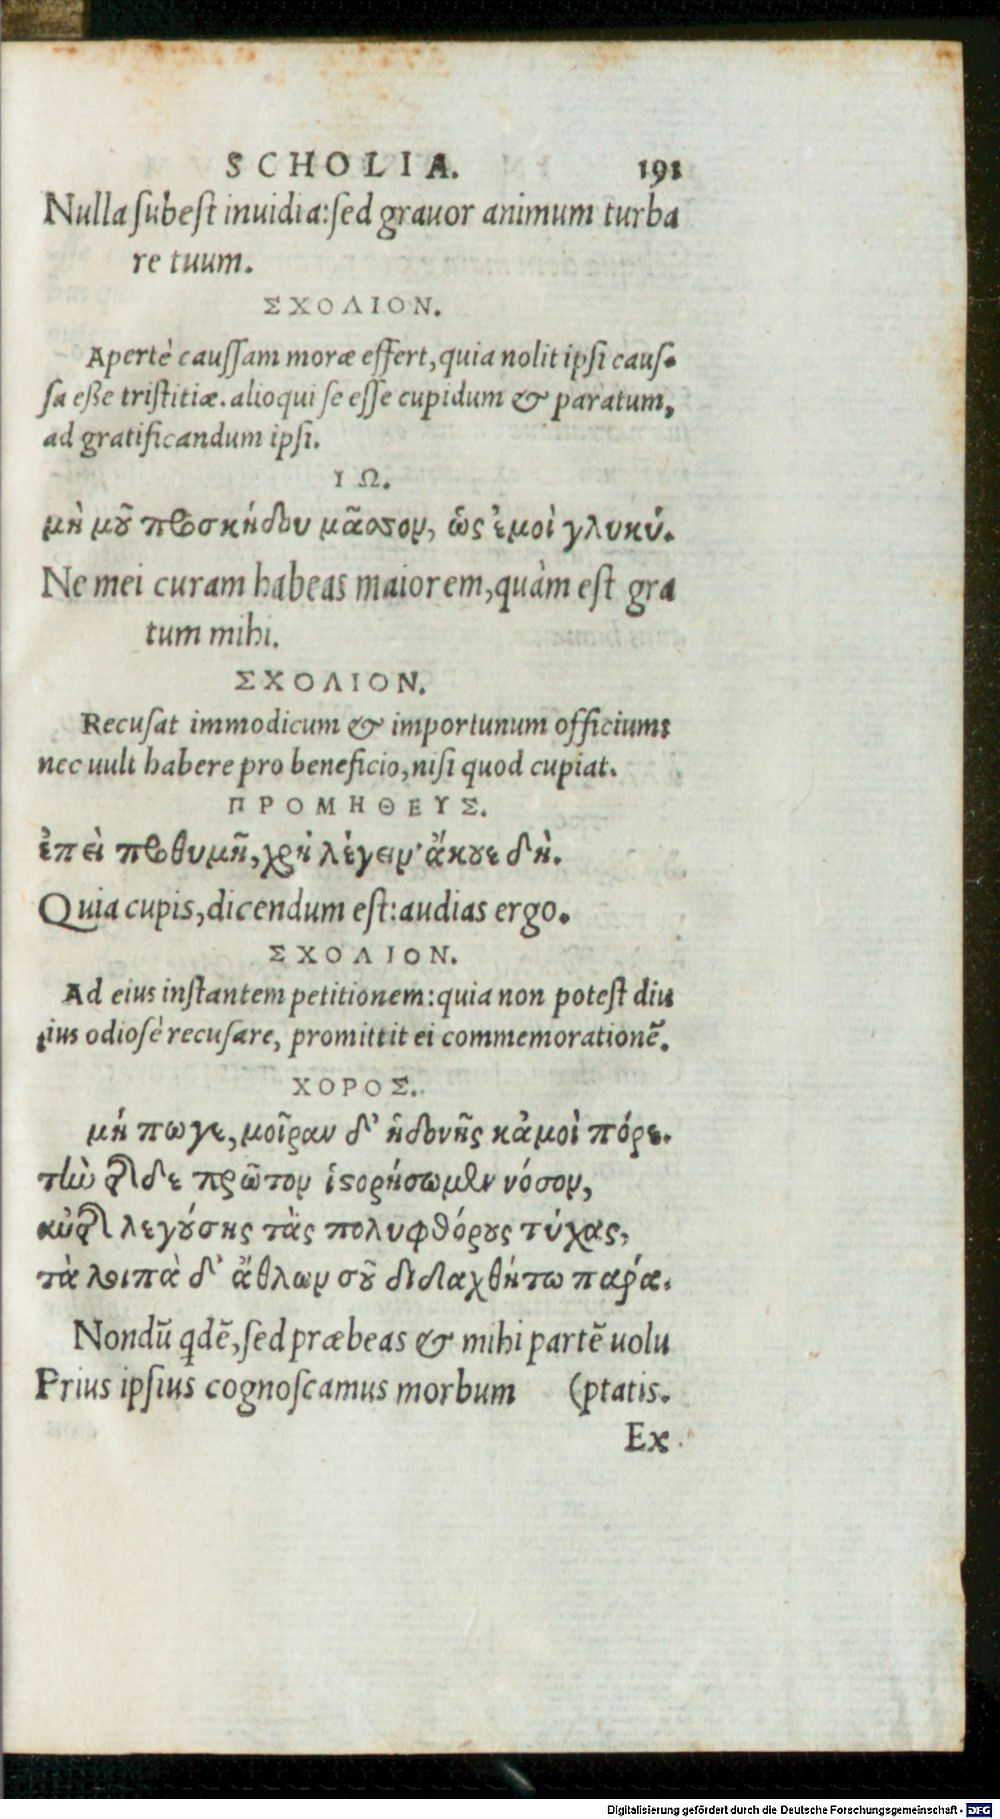 SCHOLIA. 191
Nulla subest inuidia:sed grauor animum turba
re tuum.
ΣΧΟΛΙΟΝ.
Apertè caussam moræ effert, quia nolit ipsi caus-
sa eße tristitiæ. alioqui se esse cupidum & paratum,
ad gratificandum ipsi.
ΙΩ.
μὴ μοῦ προσκήδου μᾶσσον, ὡς ἐμοὶ γλυκύ.
Ne mei curam habeas maiorem, quàm est gra
tum mihi.
ΣΧΟΛΙΟΝ.
Recusat immodicum & importunum officium:
nec uult habere pro beneficio, nisi quod cupiat.
ΠΡΟΜΗΘΕΥΣ.
ἐπεὶ προθυμῆ, χρὴ λέγειν· ἄκουε δή.
Quia cupis, dicendum est: audias ergo.
ΣΧΟΛΙΟΝ.
Ad eius instantem petitionem: quia non potest diu
tius odiosè recusare, promittit ei commemorationē.
ΧΟΡΟΣ.
μή πωγε, μοῖραν δ' ἡδονῆς κἀμοὶ πόρε.
τὴν τῆσδε πρῶτον ἱστορήσωμεν νόσον,
αὐτῆς λεγούσης τὰς πολυφθόρους τύχας,
τὰ λοιπὰ δ' ἄθλων σοῦ διδαχθήτω πάρα.
Nondū qdē, sed præbeas & mihi partē uolu
Prius ipsius cognoscamus morbum (ptatis.
Ex
Digitalisierung gefördert durch die Deutsche Forschungsgemeinschaft - DFG